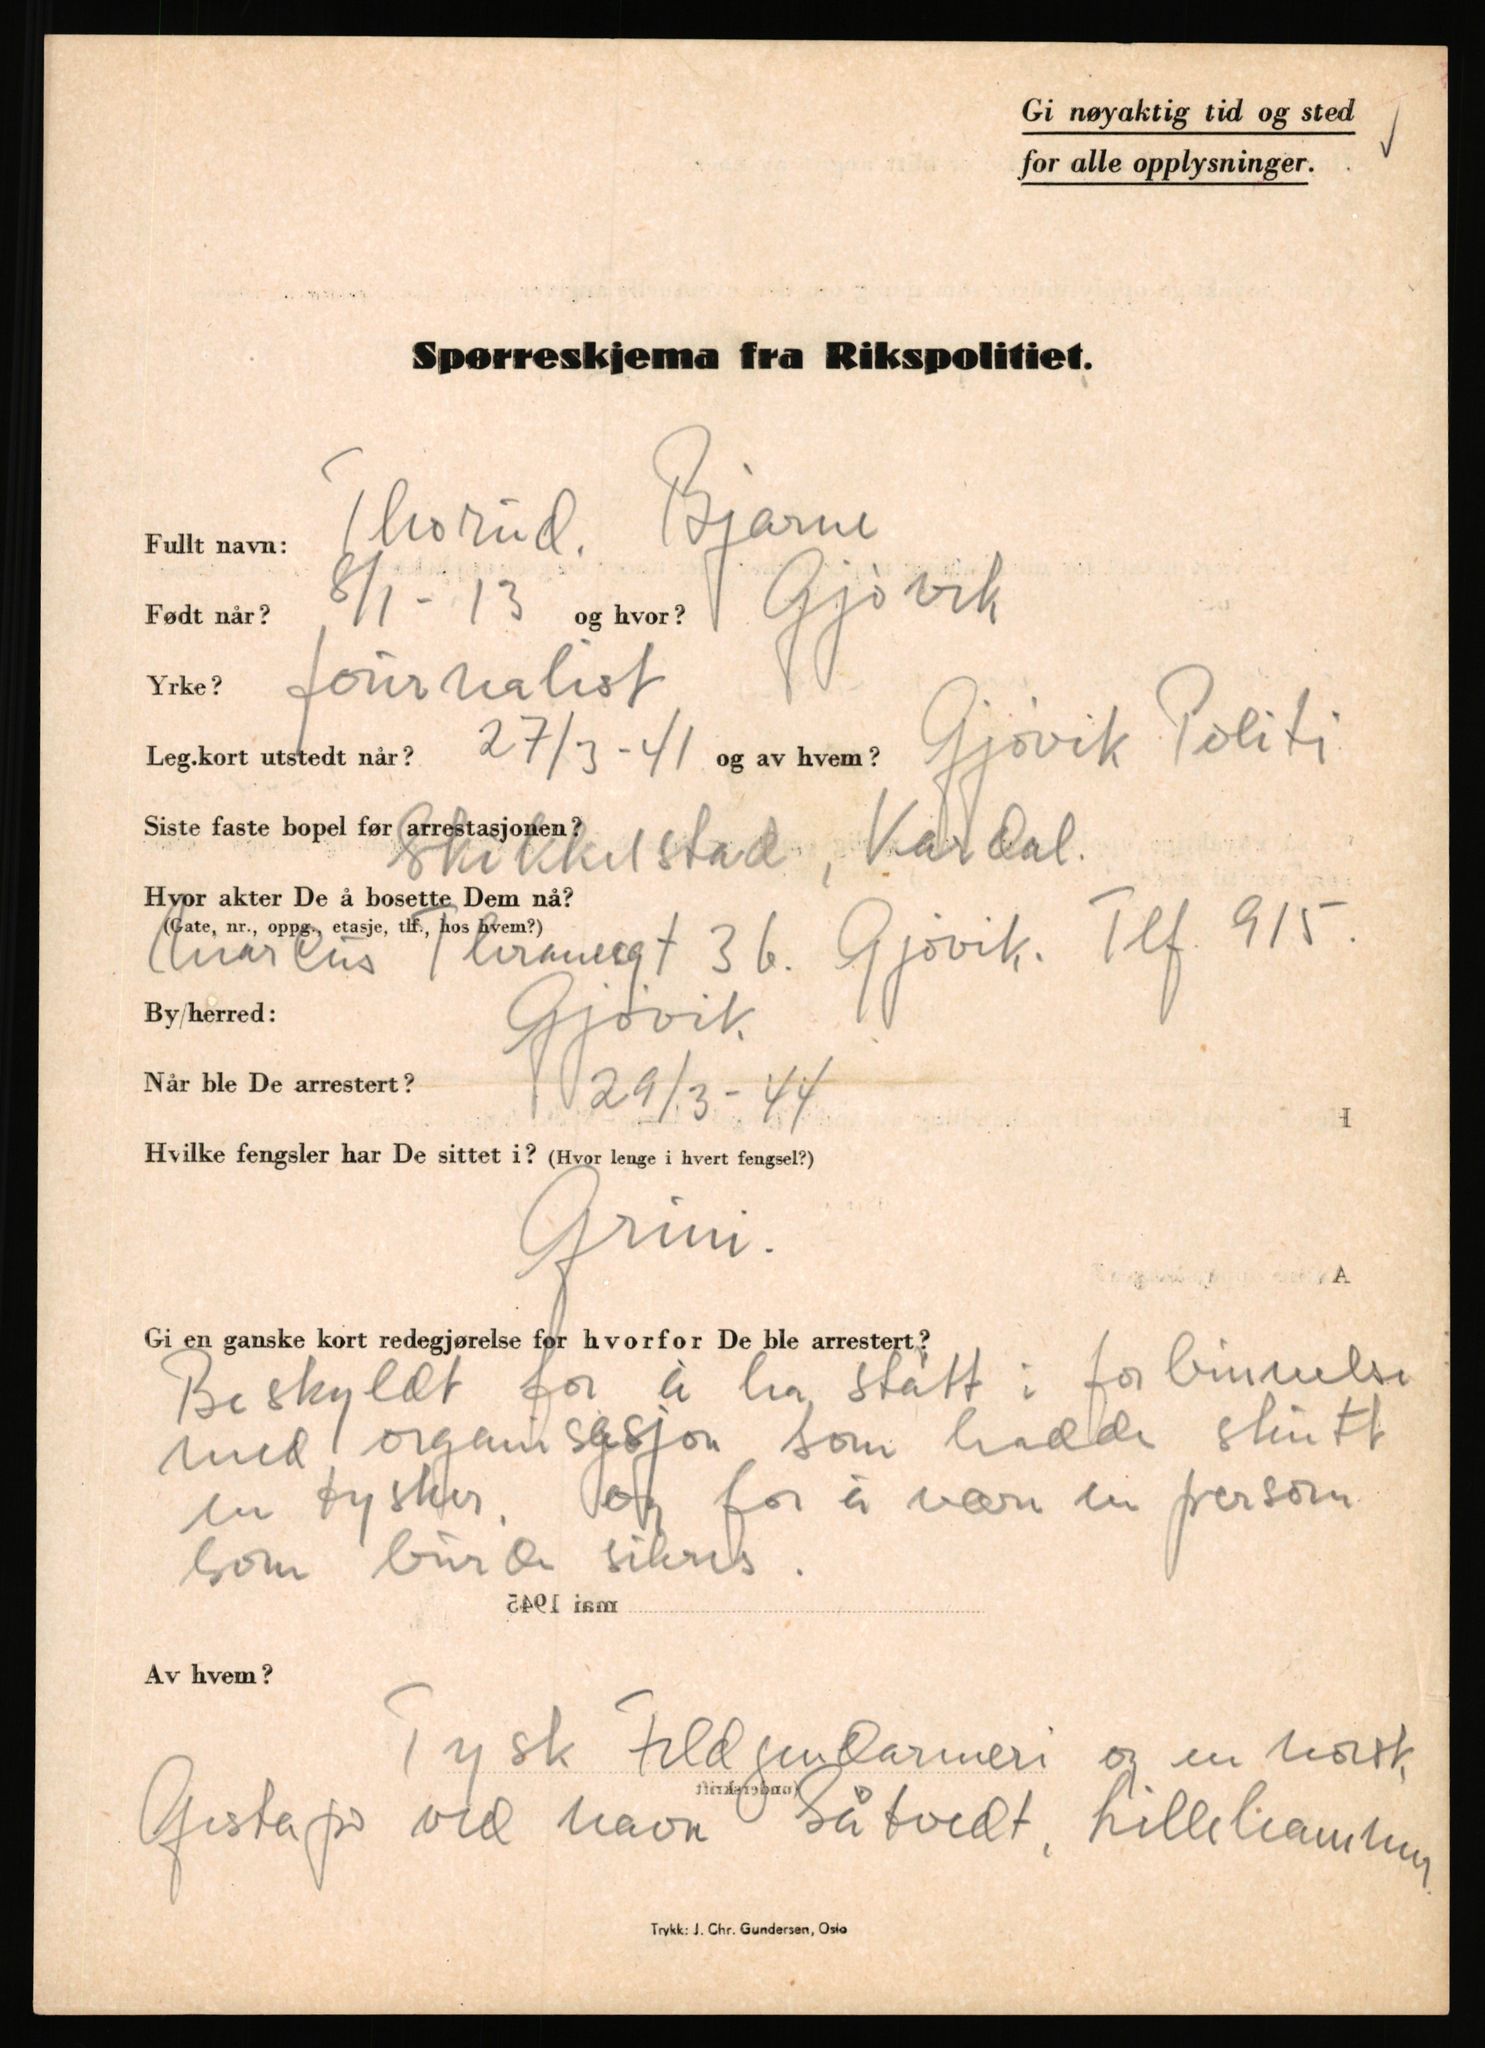 Gi nøyaktig tid og sted
for alle opplysninger.
Spørreskjema fra Rikspolitiet.
Fullt navn: Thorud. Bjarne
Født når? 8/1 - 13 og hvor? Gjøvik
Yrke? journalist
Leg.kort utstedt når? 27/3 - 41 og av hvem? Gjøvik Politi
Siste faste bopel før arrestasjonen? Skikkelstad, Vardal.
Hvor akter De å bosette Dem nå?
(Gate, nr., oppg., etasje, tlf., hos hvem?)
Marcus Thranesgt 36. Gjøvik. Tlf. 915.
By/herred: Gjøvik.
Når ble De arrestert? 29/3 - 44
Hvilke fengsler har De sittet i? (Hvor lenge i hvert fengsel?)
Grini.
Gi en ganske kort redegjørelse for hvorfor De ble arrestert?
Beskyldt for å ha stått i forbinnelse
med organisasjon som hadde skutt
en tysker, og for å være en person
som burde sikres.
mai 1945
Av hvem?
Tysk Feldgendarmeri og en norsk
(underskrift)
Gestapo ved navn Såtvedt, Lillehammer.
Trykk: J. Chr. Gundersen, Oslo